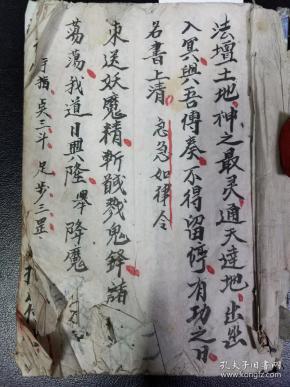 法壇土地神之最灵通天達地出幽
入冥與吾傳奏不得留停有功之日
名書上清 急急如律令
束送妖魔精斬馘戮鬼鋒諸
荡荡我道日興隆 降魔
手擒 三斗 足步三罡
孔夫子旧书网